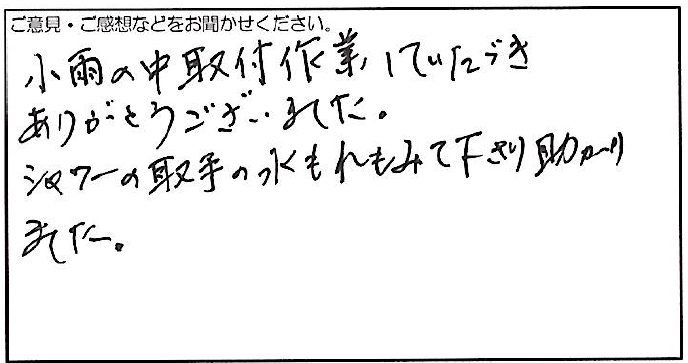 ご意見・ご感想などをお聞かせください。
小雨の中取付作業していただき
ありがとうございました。
シャワーの取手の水もれもみて下さり助かり
ました。